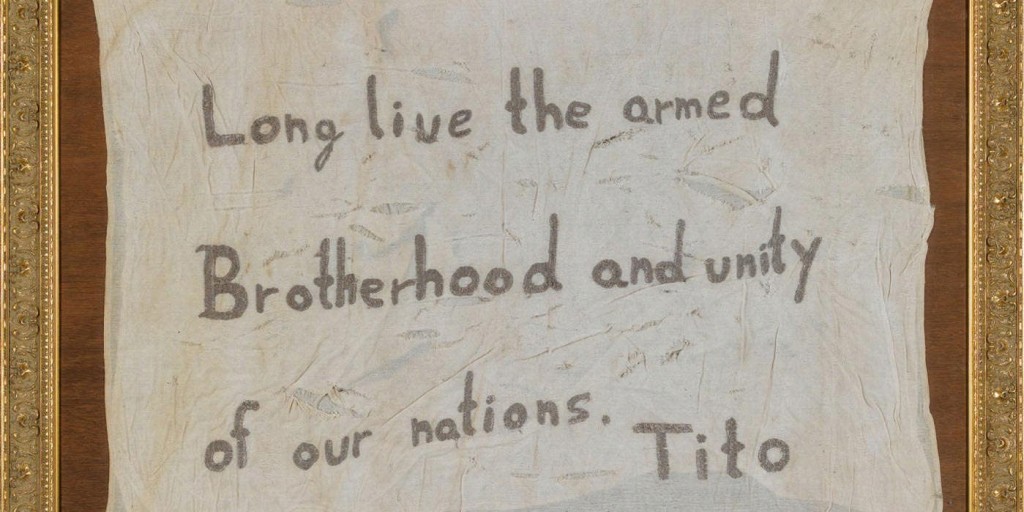 Long live the armed
Brotherhood and unity
of our nations. Tito